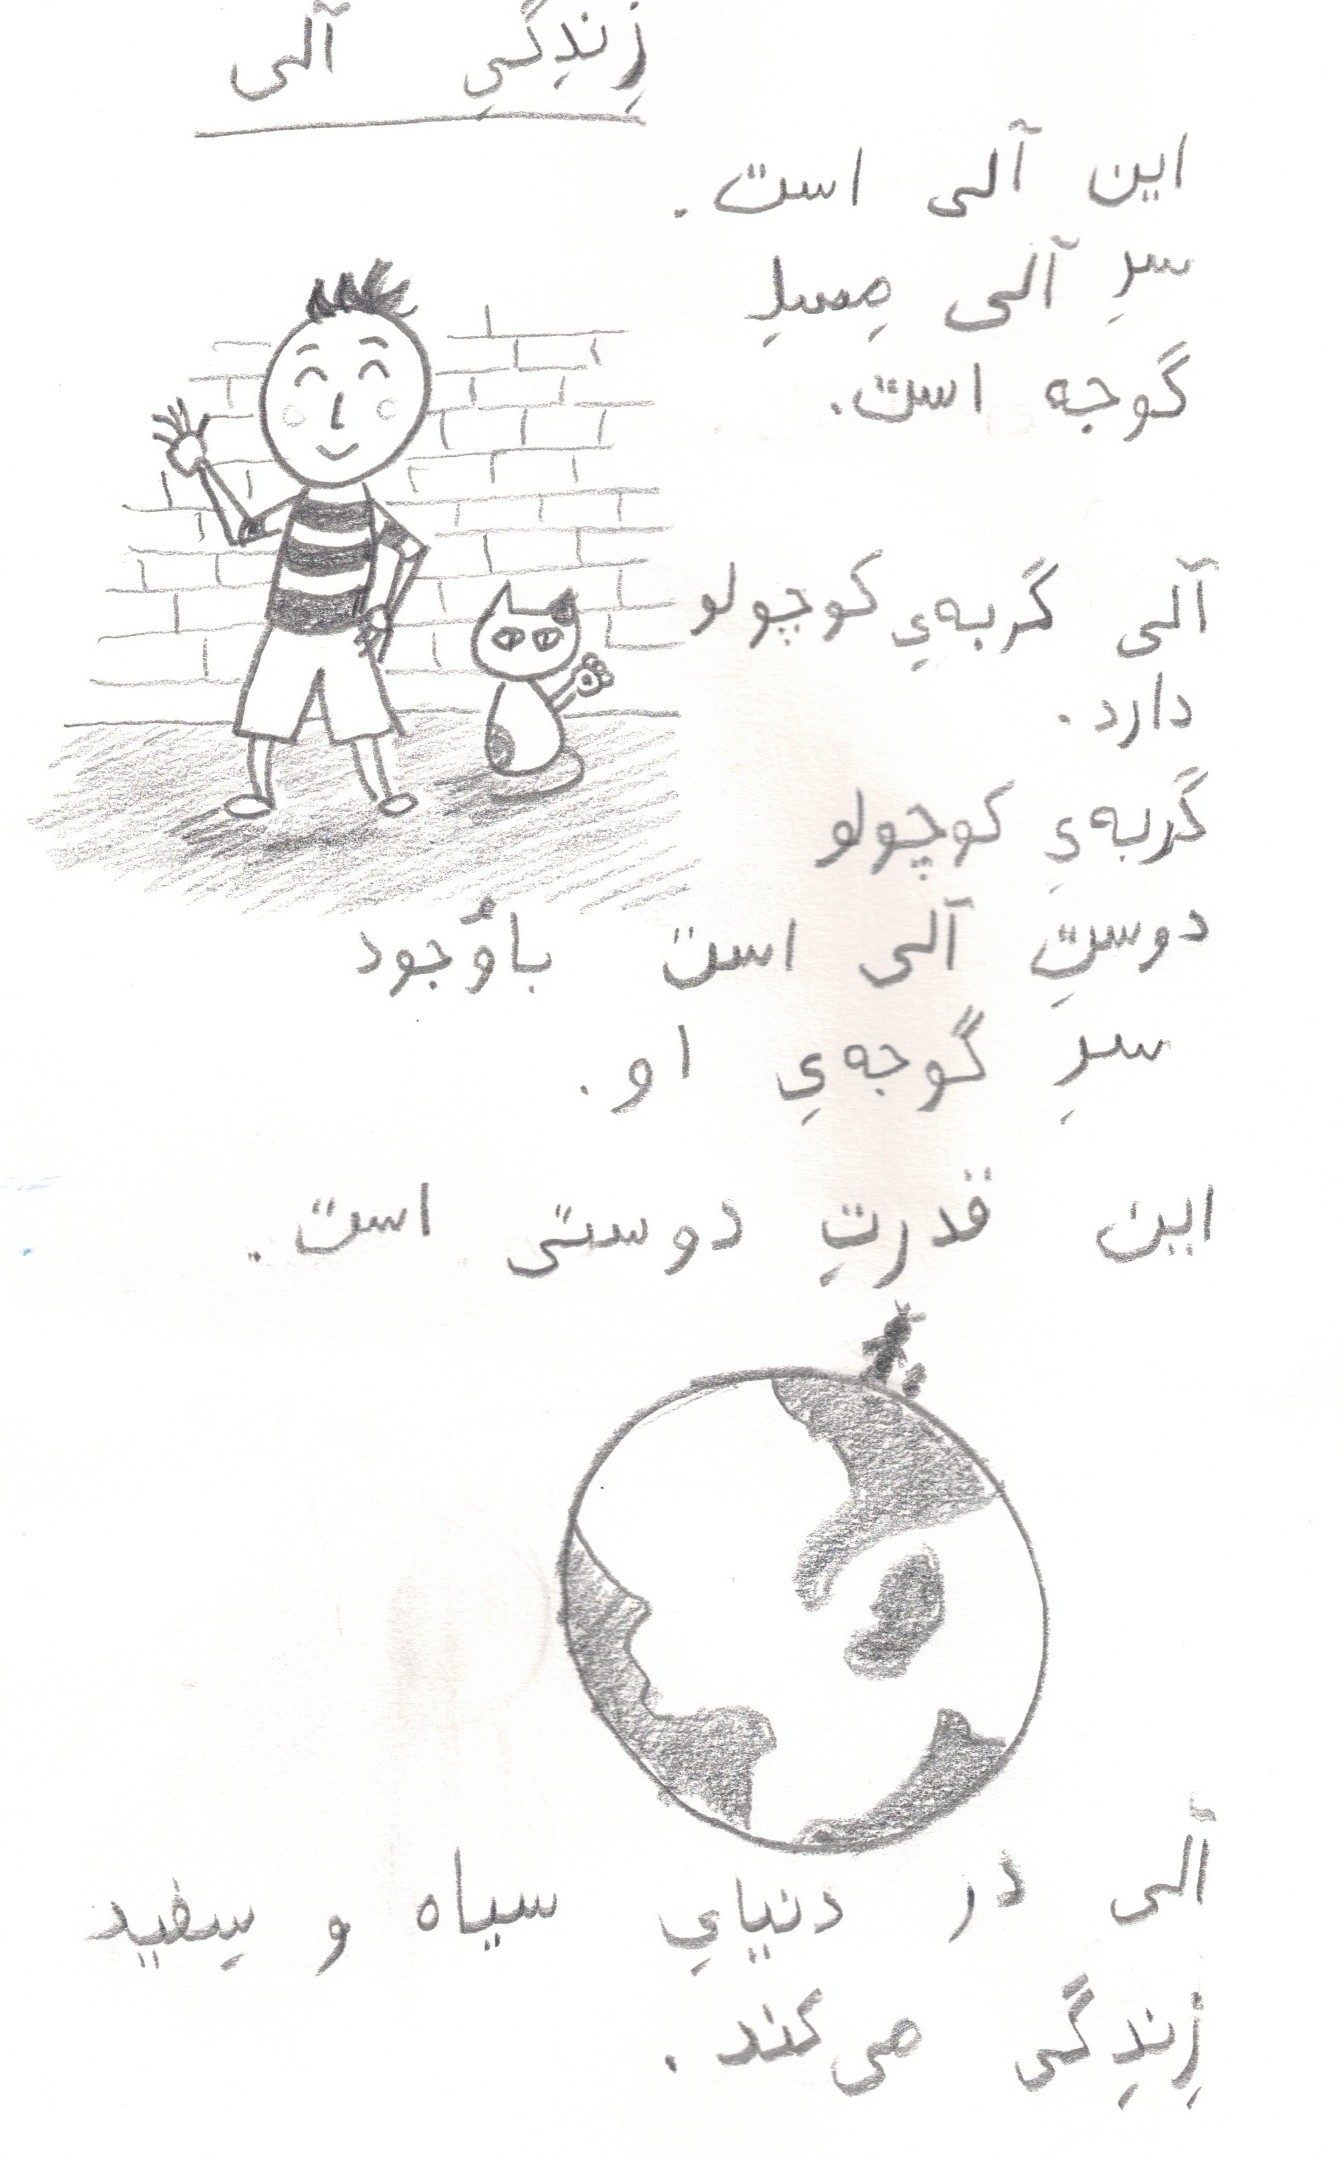 زِندِگیِ آلی
این آلی است.
سرِ آلی مِسلِ
گوجه است.
آلی گربه‌یِ کوچولو
دارد.
گربه‌یِ کوچولو
دوستِ آلی است باوُجود
سرِ گوجه‌یِ او.
این قدرتِ دوستی است.
آلی در دنیایِ سیاه و سِفید
زِندِگی می‌کند.